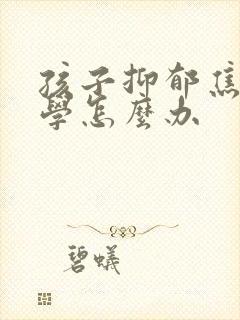 孩子抑郁焦
學怎麼办
碧蟻